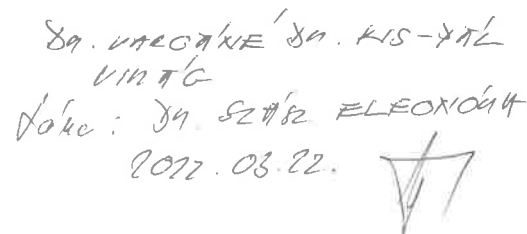 Dr. VARGÁNÉ Dr. KIS-PÁL
VIRÁG
Dr SZÁSZ ELEONÓRA
2022.03.22.